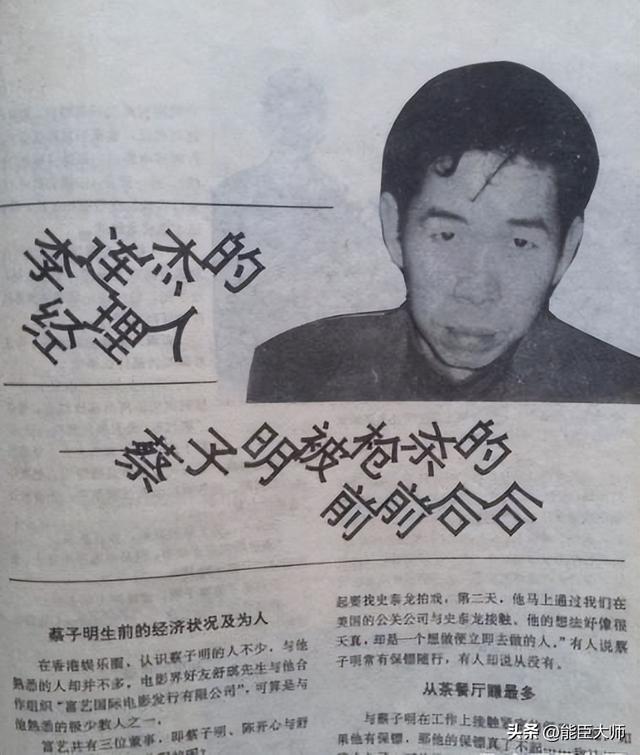 李连杰的
经理人
——蔡子明被枪杀的
前前后后
蔡子明生前的经济状况及为人
在香港娱乐圈、认识蔡子明的人不少，与他
熟悉的人却并不多，电影界好友舒琪先生与他合
作组织“富艺国际电影发行有限公司”，可算是与
他熟悉的极少数人之一，
富艺共有三位董事，即蔡子明、陈开心与舒
起要找史泰龙拍戏，第二天，他马上通过我们在
美国的公关公司与史泰龙接触、他的想法好像很
天真，却是一个想做便立即去做的人，”有人说蔡
子明常有保镖随行，有人却说从没有。
从茶餐厅赚最多
与蔡子明在工作上接触
果他有保镖，那他的保镖真
头条 @能臣大师